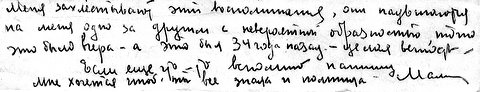 меня захлёстывают эти воспоминания, они надвигаются
на меня одно за другим с невероятной образностью, точно
это было вчера - а это был 34 года назад. - целая вечность -
Если еще что-то вспомню напишу
мне хочется чтоб ты все знала и помнила - Мама